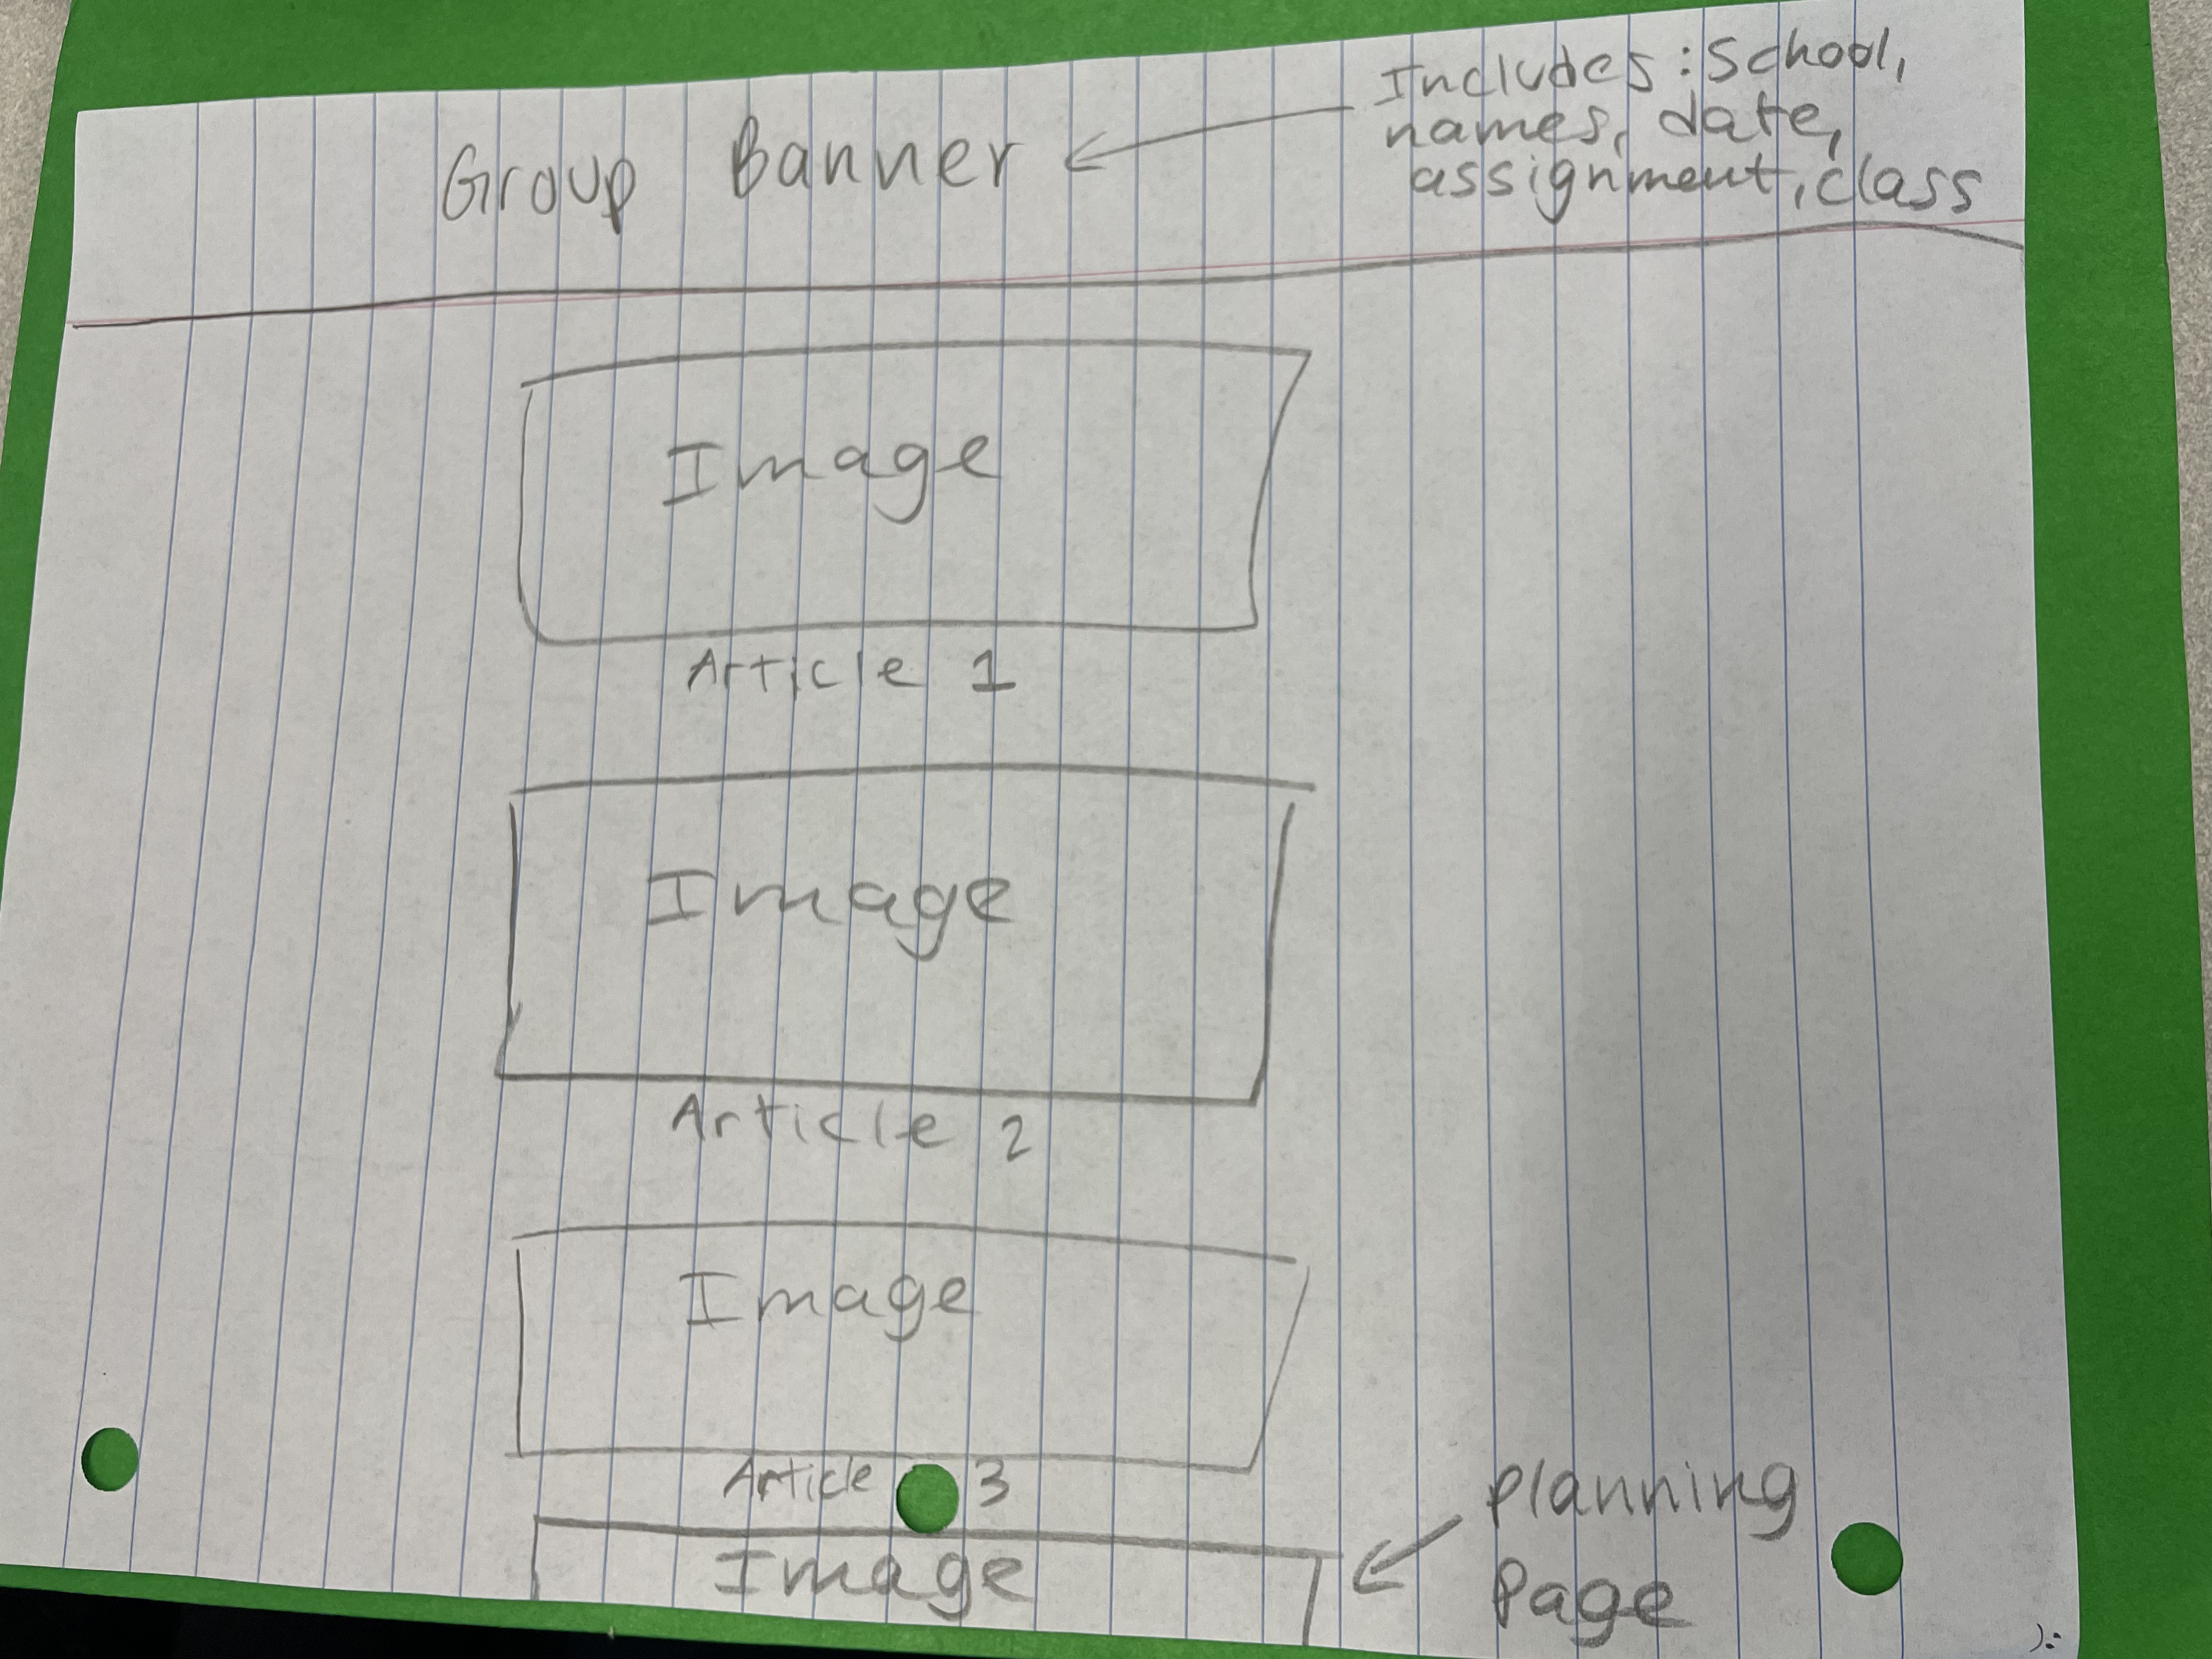 Group Banner
Includes: School,
names, date,
assignment, class
Image
Article 1
Image
Article 2
Image
Article 3
Image
Planning
Page
):